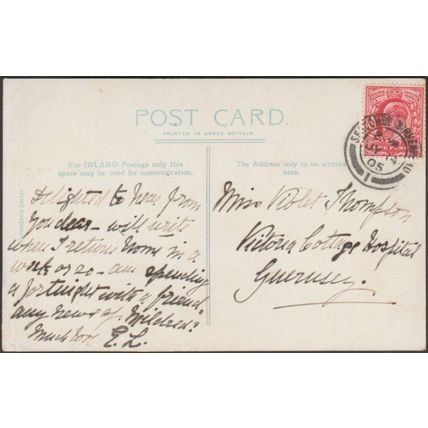 POST CARD.
PRINTED IN GREAT BRITAIN
For INLAND Postage only this
space may be used for communication.
The Address only to be written
here.
Delighted to hear from
you dear – will write
when I return home in a
week or so – am spending
a fortnight with a friend.
any news of Mildred?
Much love E. L.
Miss Violet Thompson
Victoria Cottage Hospital
Guernsey.
05
1